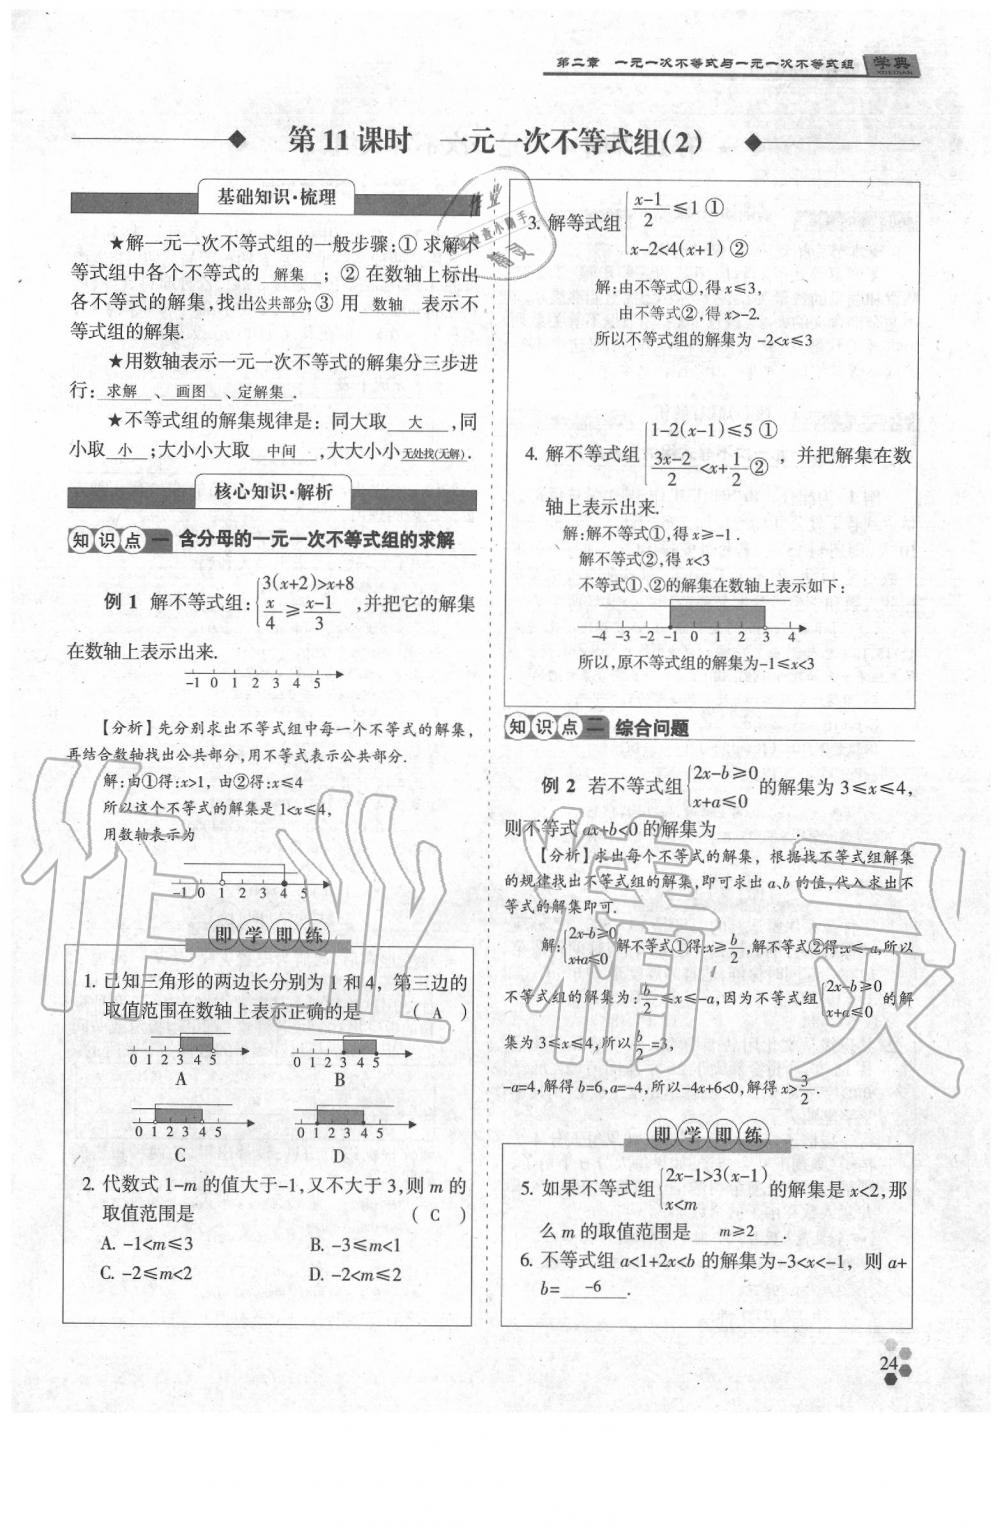 第二章 一元一次不等式与一元一次不等式组 学典
XUEDIAN
第11课时 一元一次不等式组(2)
基础知识·梳理
★解一元一次不等式组的一般步骤:① 求解不
等式组中各个不等式的 解集 ;② 在数轴上标出
各不等式的解集,找出公共部分;③ 用 数轴 表示不
等式组的解集.
★用数轴表示一元一次不等式的解集分三步进
行: 求解 、 画图 、定解集 .
★不等式组的解集规律是: 同大取 大 ,同
小取 小 ;大小小大取 中间 ,大大小小无处找(无解).
核心知识·解析
知识点一 含分母的一元一次不等式组的求解
例 1 解不等式组:{3(x+2)>x+8
x/4≥(x-1)/3 ,并把它的解集
在数轴上表示出来.
-1 0 1 2 3 4 5
【分析】先分别求出不等式组中每一个不等式的解集,
再结合数轴找出公共部分,用不等式表示公共部分.
解:由①得:x>1, 由②得:x≤4
所以这个不等式的解集是 1<x≤4,
用数轴表示为
-1 0 1 2 3 4 5
即学即练
1. 已知三角形的两边长分别为 1 和 4, 第三边的
取值范围在数轴上表示正确的是 ( A )
0 1 2 3 4 5
A
0 1 2 3 4 5
B
0 1 2 3 4 5
C
0 1 2 3 4 5
D
2. 代数式 1-m 的值大于-1,又不大于 3,则 m 的
取值范围是 ( C )
A. -1<m≤3 B. -3≤m<1
C. -2≤m<2 D. -2<m≤2
3. 解等式组{(x-1)/2≤1 ①
x-2<4(x+1) ②
解:由不等式①,得 x≤3,
由不等式②,得 x>-2.
所以不等式组的解集为 -2<x≤3
4. 解不等式组{1-2(x-1)≤5 ①
(3x-2)/2<x+1/2 ② , 并把解集在数
轴上表示出来.
解:解不等式①,得 x≥-1 .
解不等式②,得 x<3
不等式①、②的解集在数轴上表示如下:
-4 -3 -2 -1 0 1 2 3 4
所以,原不等式组的解集为-1≤x<3
知识点二 综合问题
例 2 若不等式组{2x-b≥0
x+a≤0 的解集为 3≤x≤4,
则不等式 ax+b<0 的解集为        .
【分析】求出每个不等式的解集, 根据找不等式组解集
的规律找出不等式组的解集,即可求出 a、b 的值,代入求出不
等式的解集即可.
解:{2x-b≥0
x+a≤0 解不等式①得:x≥b/2,解不等式②得:x≤-a,所以
不等式组的解集为:b/2≤x≤-a,因为不等式组{2x-b≥0
x+a≤0 的解
集为 3≤x≤4,所以b/2=3,
-a=4,解得 b=6,a=-4,所以-4x+6<0,解得 x>3/2.
即学即练
5. 如果不等式组{2x-1>3(x-1)
x<m 的解集是 x<2,那
么 m 的取值范围是 m≥2 .
6. 不等式组 a<1+2x<b 的解集为-3<x<-1, 则 a+
b= -6 .
24
作业
检查小助手
精灵
作业精灵